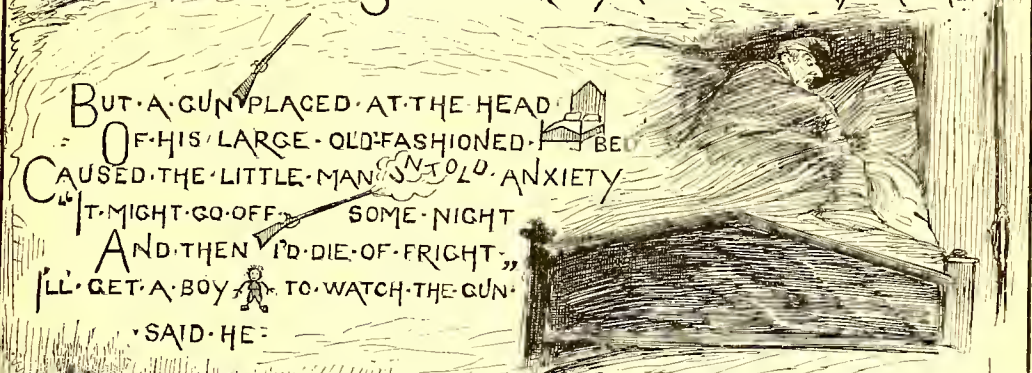 BUT·A·GUN PLACED·AT·THE·HEAD
OF·HIS·LARGE·OLD-FASHIONED·BED
CAUSED·THE·LITTLE·MAN UNTOLD·ANXIETY
"IT·MIGHT·GO·OFF SOME·NIGHT
AND·THEN I'D·DIE·OF·FRIGHT·"
I'LL·GET·A·BOY TO·WATCH·THE·GUN·
·SAID·HE·